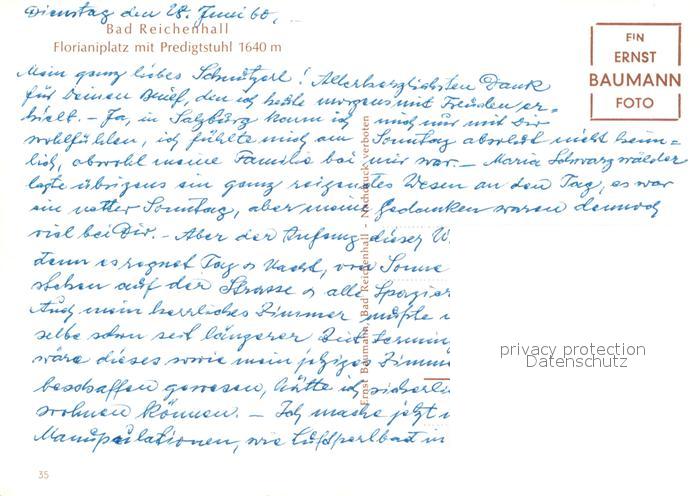 Dienstag den 28. Juni 60,
Bad Reichenhall
Florianiplatz mit Predigtstuhl 1640 m
EIN
ERNST
BAUMANN
FOTO
Mein ganz liebes Schnutzerl! Allerherzlichsten Dank
für Deinen Brief, den ich heute morgens mit Freuden er-
hielt. – Ja, in Salzburg kann ich mich nur mit Dir
wohlfühlen, ich fühlte mich am Sonntag absolut nicht heim-
lich, obwohl meine Familie bei mir war. – Maria Schwarzwälder
legte übrigens ein ganz reizendes Wesen an den Tag, es war
ein netter Sonntag, aber meine Gedanken waren dennoch
viel bei Dir. – Aber der Anfang dieser W
denn es regnet Tag & Nacht, von Sonne
stehen auf der Strasse & alle Spazier
Auch mein herrliches Zimmer mußte
selbe schon seit längerer Zeit termin
wäre dieses sowie mein jetziges Zimme
beschaffen gewesen, hätte ich sicherli
wohnen können. – Ich mache jetzt
Manupulationen, wie Luftperlbad in
Ernst Baumann, Bad Reichenhall - Nachdruck verboten
privacy protection
Datenschutz
35